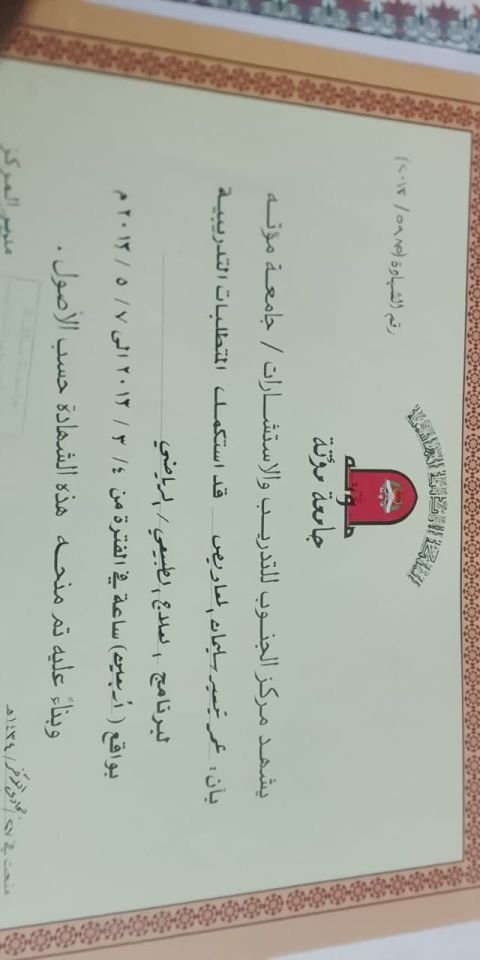 بسم الله الرحمن الرحيم
جامعة مؤتة
رقم الشهادة (
/ ٢٠١٣)
يشهد مركز الجنوب للتدريب والاستشارات / جامعة مؤته
بأن: عمر تيسير سليمان قد استكمل المتطلبات التدريبية
لبرنامج العلاج الطبيعي / الرياضي
بواقع (أربعين) ساعة في الفترة من ٤ / ٣ / ٢٠١٣ الى ٧ / ٥ / ٢٠١٣ م
وبناءً عليه تم منحه هذه الشهادة حسب الأصول .
منحت في ٢٧ / / ١٤٣٤هـ
مدير المركز